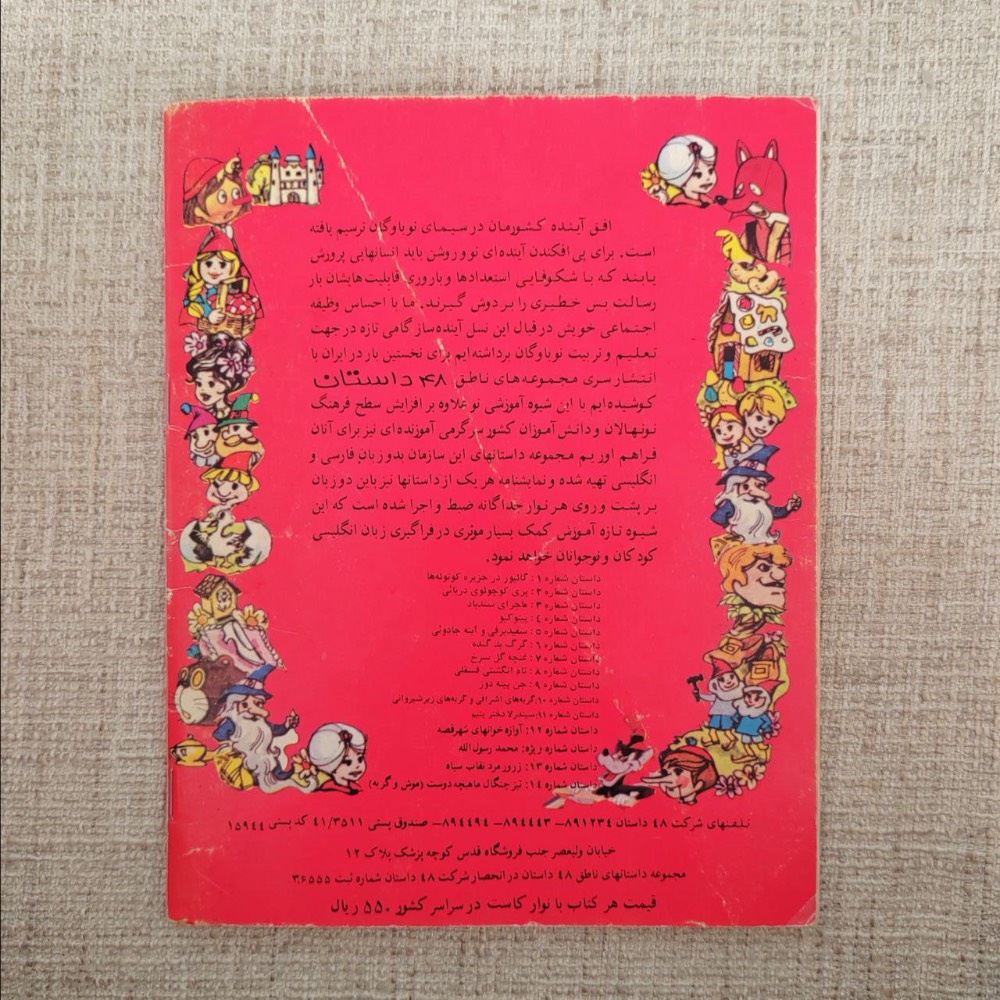 افق آینده کشورمان در سیمای نوباوگان ترسیم یافته
است. برای پی افکندن آینده‌ای نو و روشن باید انسانهایی پرورش
یابند که با شکوفایی استعدادها و باروری قابلیت‌هایشان بار
رسالت بس خطیری را بر دوش گیرند. ما با احساس وظیفه
اجتماعی خویش در قبال این نسل آینده‌ساز گامی تازه در جهت
تعلیم و تربیت نوباوگان برداشته‌ایم برای نخستین بار در ایران با
انتشار سری مجموعه‌های ناطق ۴۸ داستان
کوشیده‌ایم با این شیوه آموزشی نو علاوه بر افزایش سطح فرهنگ
نونهالان و دانش‌آموزان کشور سرگرمی آموزنده‌ای نیز برای آنان
فراهم آوریم مجموعه داستانهای این سازمان بدو زبان فارسی و
انگلیسی تهیه شده و نمایشنامه هر یک از داستانها نیز باین دو زبان
بر پشت و روی هر نوار جداگانه ضبط و اجرا شده است که این
شیوه تازه آموزش کمک بسیار موثری در فراگیری زبان انگلیسی
کودکان و نوجوانان خواهد نمود.
داستان شماره ۱: گالیور در جزیره کوتوله‌ها
داستان شماره ۲: پری کوچولوی دریائی
داستان شماره ۳: ماجرای سندباد
داستان شماره ۴: پینوکیو
داستان شماره ۵: سفیدبرفی و آینه جادوئی
داستان شماره ۶: گرگ بد گنده
داستان شماره ۷: غنچه گل سرخ
داستان شماره ۸: تام انگشتی فسقلی
داستان شماره ۹: جن پینه دوز
داستان شماره ۱۰: گربه‌های اشرافی و گربه‌های زیرشیروانی
داستان شماره ۱۱: سیندرلا دختر یتیم
داستان شماره ۱۲: آوازه خوانهای شهرقصه
داستان شماره ویژه: محمد رسول الله
داستان شماره ۱۳: زورو مرد نقاب سیاه
داستان شماره ۱۴: تیز چنگال ماهیچه دوست (موش و گربه)
تلفنهای شرکت ۴۸ داستان ۸۹۱۲۳۴– ۸۹۴۴۴۳– ۸۹۴۴۹۴– صندوق پستی ۴۱/۳۵۱۱ کد پستی ۱۵۹۴۴
خیابان ولیعصر جنب فروشگاه قدس کوچه پزشک پلاک ۱۲
مجموعه داستانهای ناطق ۴۸ داستان در انحصار شرکت ۴۸ داستان شماره ثبت ۳۶۵۵۵
قیمت هر کتاب با نوار کاست در سراسر کشور ۵۵۰ ریال